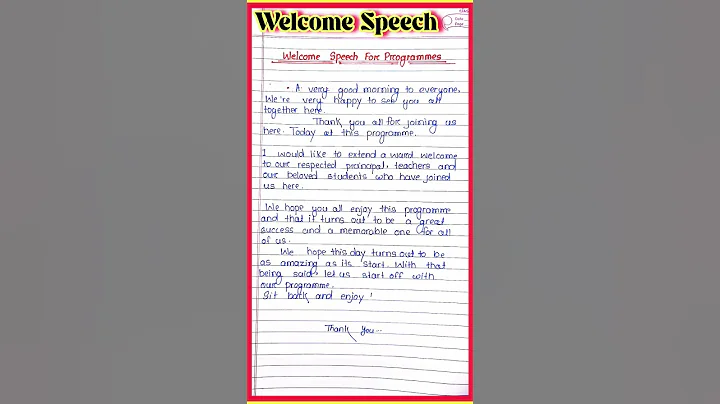 Welcome Speech
Date
Page
Welcome Speech For Programmes
• A very good morning to everyone,
We're very happy to see you all
together here.
Thank you all for joining us
here. Today at this programme.
I would like to extend a warm welcome
to our respected prainapal, teachers and
our beloved students who have joined
us here.
We hope you all enjoy this programme
and that it turns out to be a great
success and a memorable one for all
of us.
We hope this day turns out to be
as amazing as its start. With that
being said, let us start off with
our programme.
Sit back and enjoy !
Thank you...